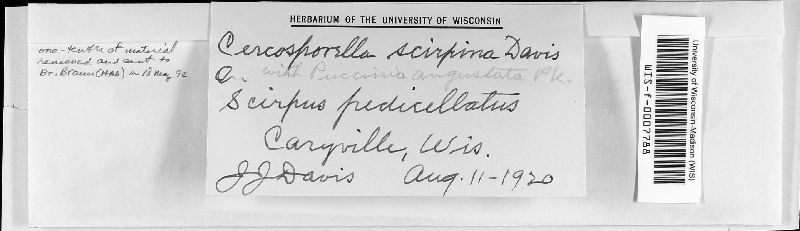 one-tenth of material
removed and sent to
Dr. Braun (HAL) on 18 May 92
HERBARIUM OF THE UNIVERSITY OF WISCONSIN
Cercosporella scirpina Davis
on with Puccinia angustata Pk.
Scirpus pedicellatus
Caryville, Wis.
J J Davis Aug. 11-1920
University of Wisconsin-Madison (WIS)
WIS-f-0007788